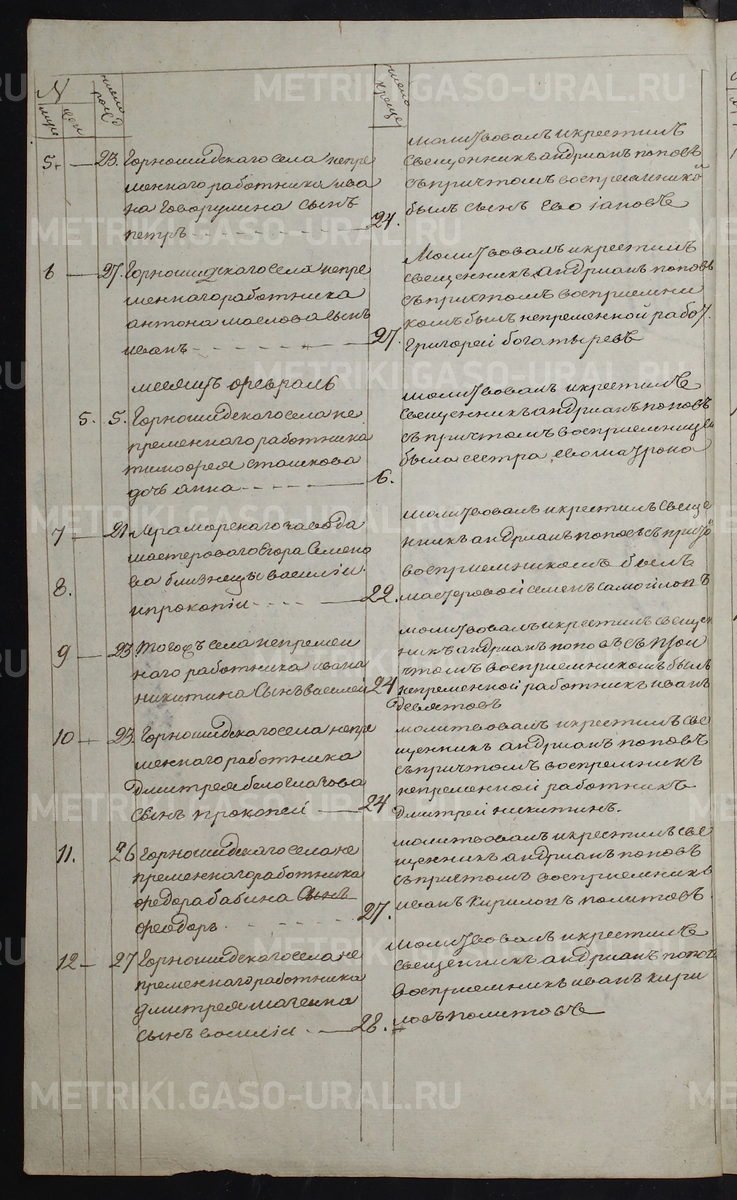 METRIKI.GASO-URAL.RU
N
муж
жен
число рожд
число креще
5 23. Горнощидскаго села непре
менного работника ива
на Говорухина сынъ
петръ
24.
молитвовалъ и крестилъ
священникъ андрианъ поповъ
съ причтомъ восприемникой
былъ сынъ его
6 27. Горнощидскаго села непре
менного работника
антона маслова сынъ
иванъ
27.
Молитвовалъ и крестилъ
священникъ андрианъ поповъ
съ причтомъ восприемни
комъ былъ непременной работ.
Григорей богатыревъ
месяцъ февраль
5. 5. Горнощидскаго села не
пременнаго работника
тимофея сташкова
дочь анна
6.
молитвовалъ и крестилъ
священникъ андрианъ поповъ
съ причтомъ восприемницей
была сестра его матрона
7 21 Мраморскаго завода
8. мастероваго егора Семено
ва близнецы василіи
и прокопіи
22.
молитвовалъ и крестилъ свяще
нникъ андрианъ поповъ съ причто
восприемникомъ былъ
мастеровой семенъ самойловъ
9 23. тогожъ села непремен
наго работника ивана
никитина Сынъ василей
24
молитвовалъ и крестилъ священ
никъ андрианъ поповъ съ при
чтомъ восприемникомъ былъ
непременной работникъ иванъ
девятовъ
10 23. Горнощидскаго села непре
меннаго работника
Дмитрея белоглазова
сынъ прокопей
24
молитвовалъ и крестилъ свя
щенникъ андрианъ поповъ
съ причтомъ восприемникъ
непременной работникъ
Дмитрей никитинъ.
11. 26 Горнощидскаго села не
пременнаго работника
федора бабина сынъ
феодоръ.
27.
молитвовалъ и крестилъ свя
щенникъ андрианъ поповъ
съ причтомъ восприемникъ
иванъ кириловъ политовъ.
12 27 Горнощидскаго села не
пременнаго работника
дмитрея
сынъ василіи
28.
молитвовалъ и крестилъ
священникъ андрианъ поповъ
восприемникъ иванъ кири
ловъ политовъ